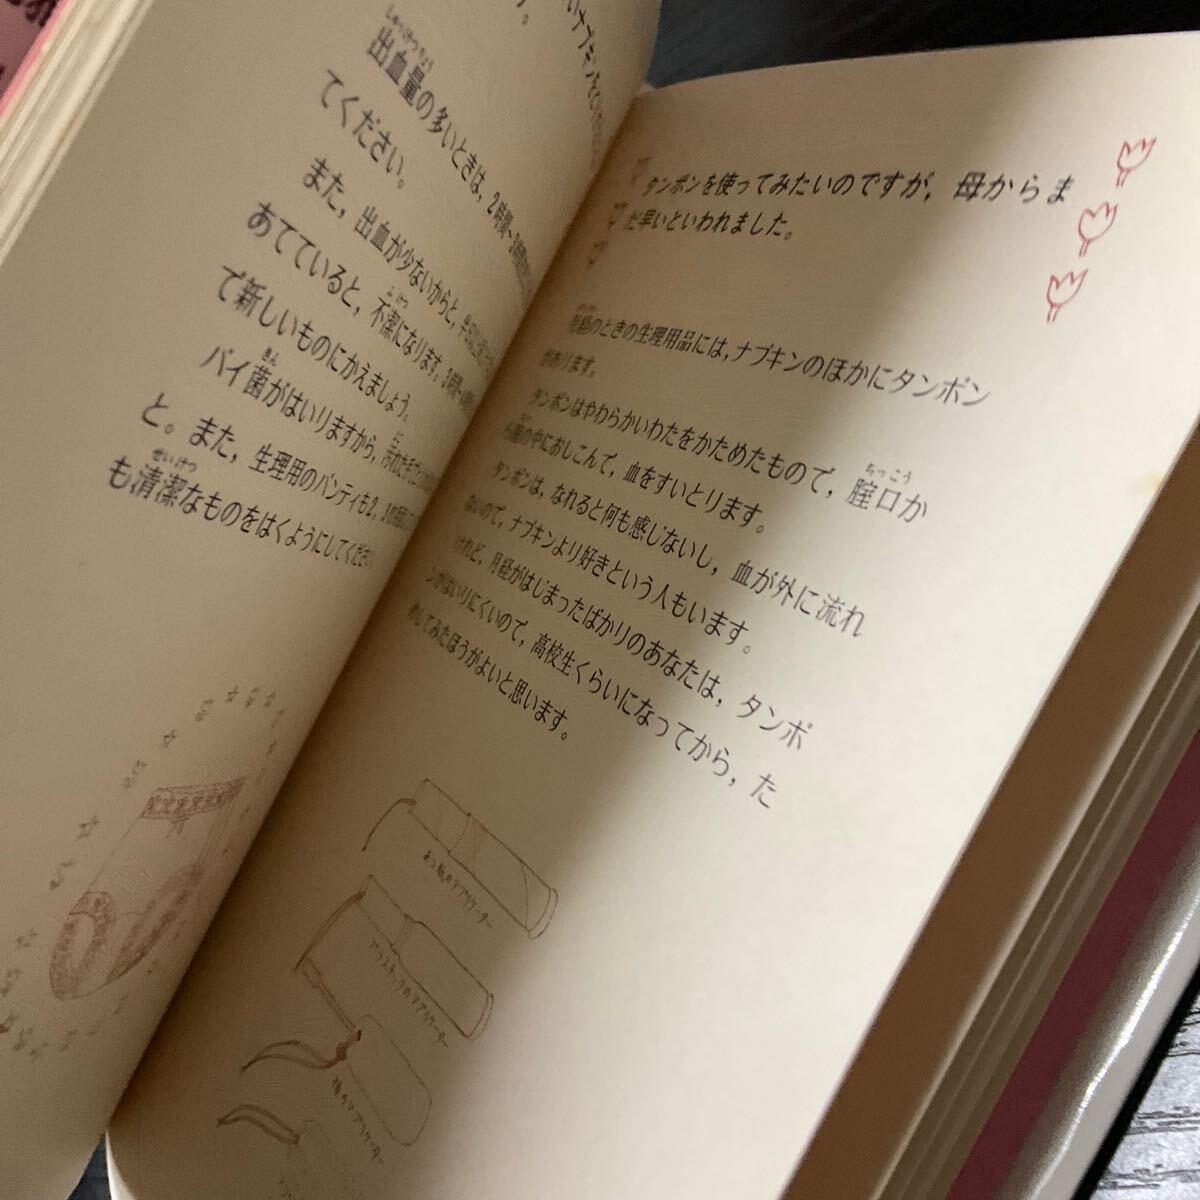 いナプキンをと
す。
しゅっけつりょう
出血量の多いときは，2時間～3時間
てください。
また，出血が少ないからと，半日
ふけつ
あてていると，不潔になります。3時間～
で新しいものにかえましょう。
きん
バイ菌がはいりますから，汚れた手で
と。また，生理用のパンティも2，3
せいけつ
も清潔なものをはくようにしてください
タンポンを使ってみたいのですが，母からま
だ早いといわれました。
月経のときの生理用品には，ナプキンのほかにタンポン
があります。
ちつこう
タンポンはやわらかいわたをかためたもので，腟口か
ら腟の中におしこんで，血をすいとります。
タンポンは，なれると何も感じないし，血が外に流れ
ないので，ナプキンより好きという人もいます。
けれど，月経がはじまったばかりのあなたは，タンポ
ンがはいりにくいので，高校生くらいになってから，た
めしてみたほうがよいと思います。
あつ紙のアプリケーター
プラスチックのアプリケーター
棒のアプリケーター